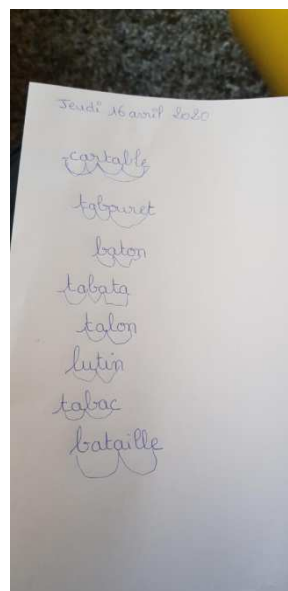 Jeudi 16 avril 2020
cartable
tabouret
baton
tabata
talon
lutin
tabac
bataille